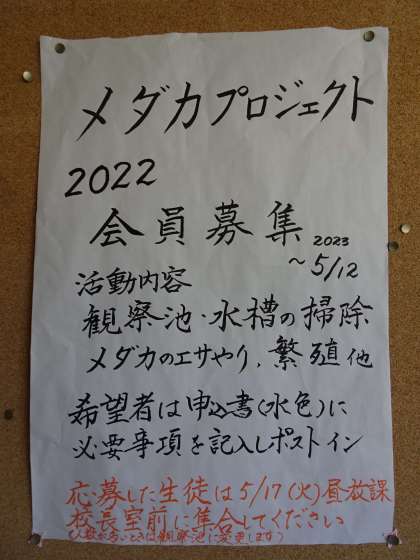 メダカプロジェクト
2022
会員募集 2023
～5/12
活動内容
観察池・水槽の掃除
メダカのエサやり、繁殖他
希望者は申込書(水色)に
必要事項を記入しポストイン
応募した生徒は5/17(火)昼放課
校長室前に集合してください
(人数が多いときは観察池に変更します)